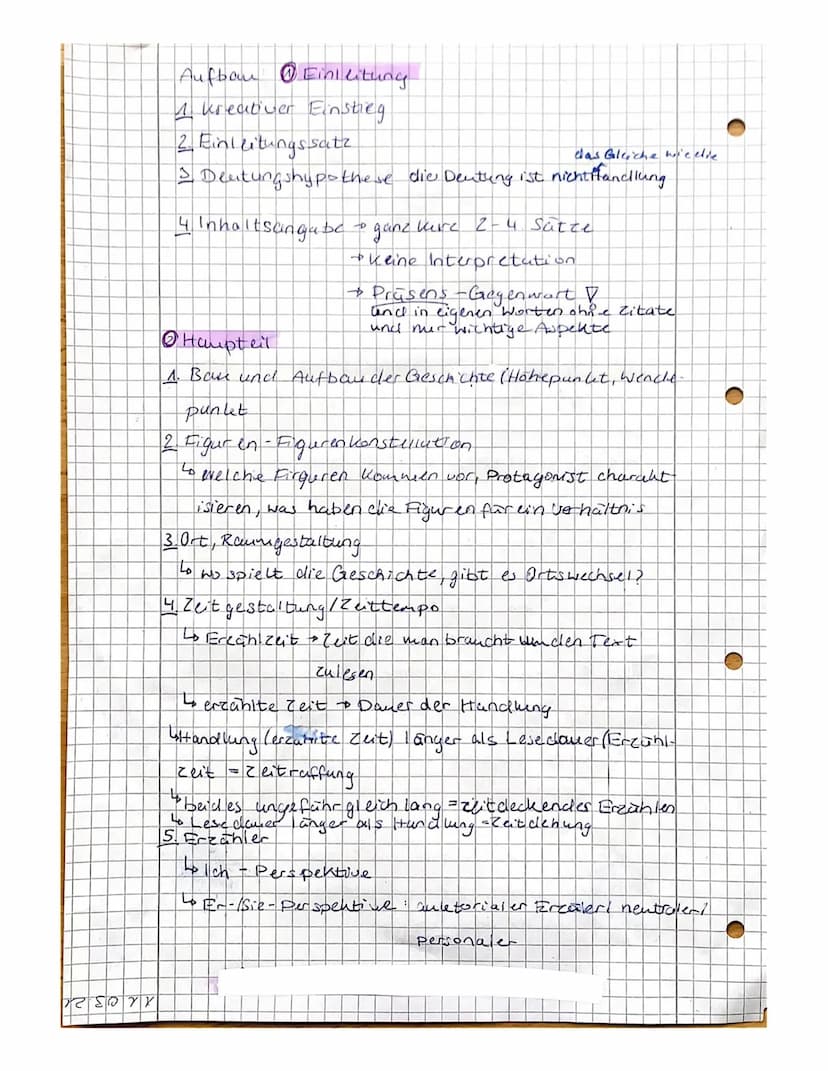 Aufbau ① Einleitung
1. Kreativer Einstieg
2. Einleitungssatz
das Gleiche wie die
3. Deutungshypothese die Deutung ist nicht Handlung
4. Inhaltsangabe → ganz kurz 2-4 Sätze
→ Keine Interpretation
→ Präsens - Gegenwart
und in eigenen Worten ohne Zitate
und nur wichtige Aspekte
② Haupteil
1. Bau und Aufbau der Geschichte (Höhepunkt, Wende-
punkt
2. Figuren - Figurenkonstellation
↳ welche Firguren kommen vor, Protagonist charakt
isieren, was haben die Figuren für ein Verhältnis
3. Ort, Raumgestaltung
↳ wo spielt die Geschichte, gibt es Ortswechsel?
4. Zeitgestaltung/Zeittempo
↳ Erzählzeit → Zeit die man braucht um den Text
zulesen
↳ erzählte Zeit → Dauer der Handlung
↳ Handlung (erzählte Zeit) länger als Lesedauer (Erzähl-
zeit = Zeitraffung
↳ beides ungefähr gleich lang = zeitdeckendes Erzählen
↳ Lesedauer länger als Handlung = Zeitdehnung
5. Erzähler
↳ Ich - Perspektive
↳ Er-/Sie-Perspektive: auktorialer Erzäler/ neutraler/
personaler
11 03 21